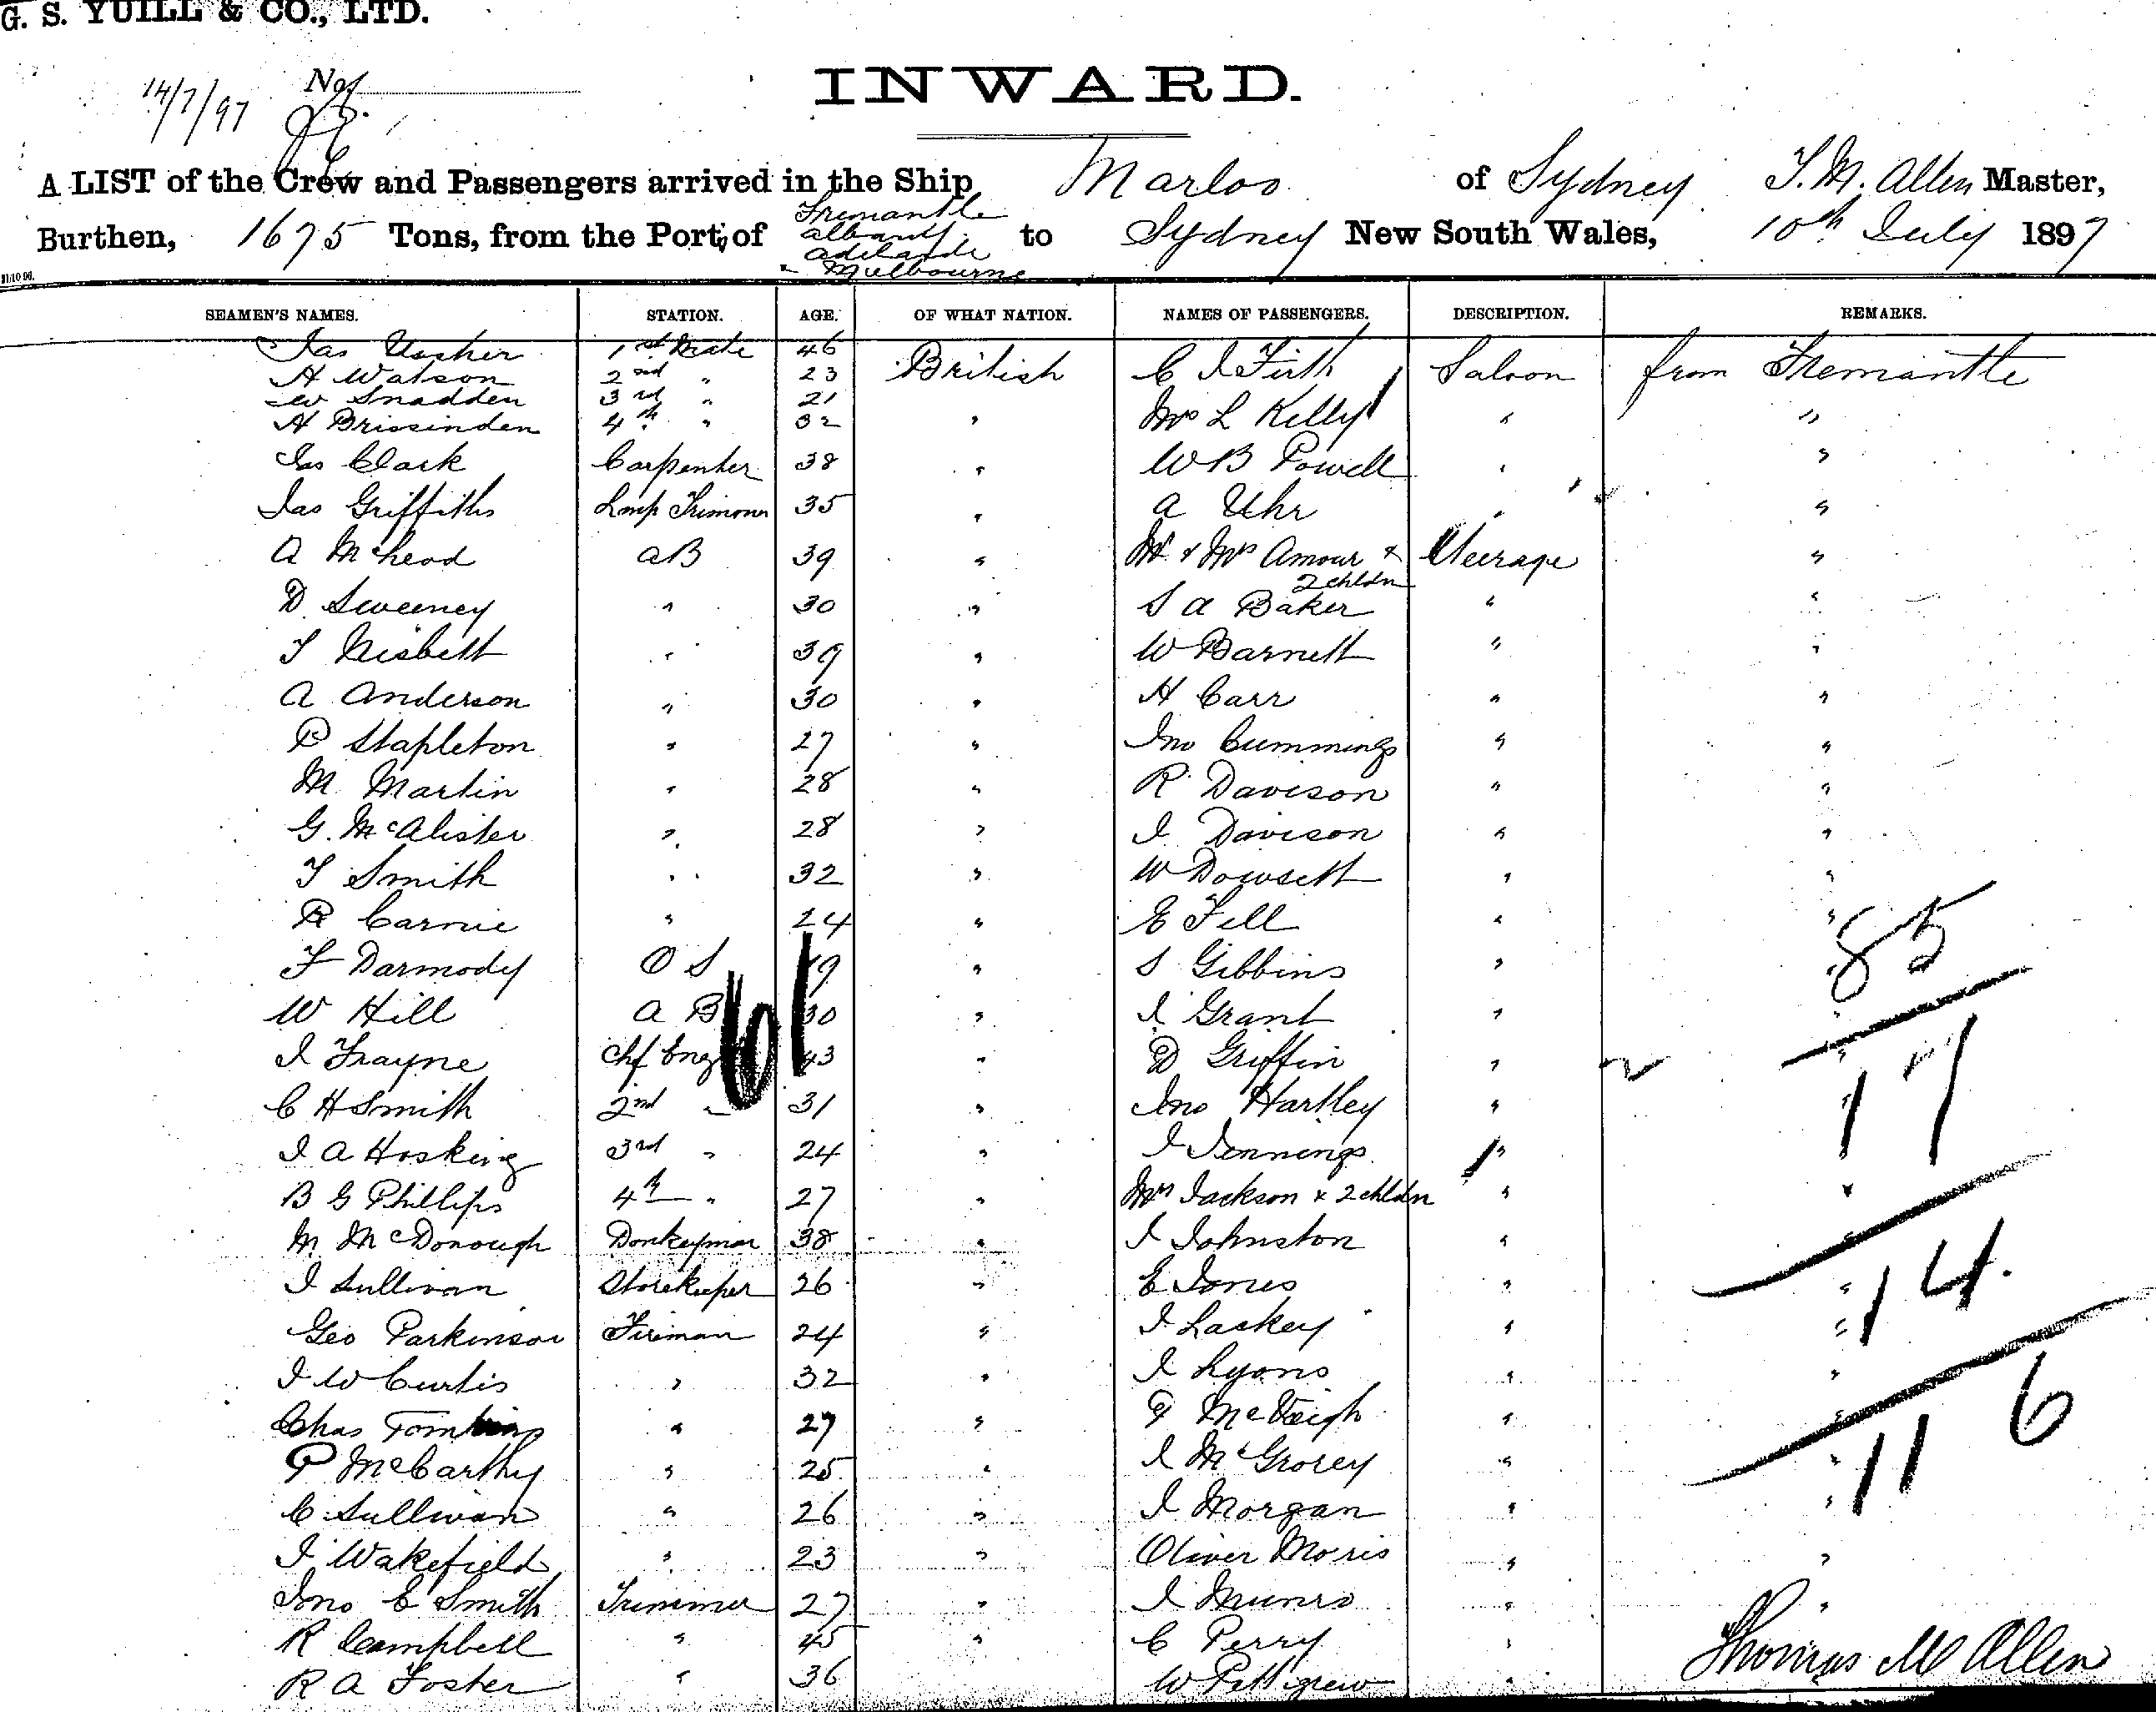 G. S. YUILL & CO., LTD.
14/7/97 No.
INWARD.
A LIST of the Crew and Passengers arrived in the Ship Marloo of Sydney T. M. Allen Master,
Burthen, 1675 Tons, from the Port of Fremantle Albany Adelaide & Melbourne to Sydney New South Wales, 10th July 1897
SEAMEN'S NAMES. STATION. AGE. OF WHAT NATION. NAMES OF PASSENGERS. DESCRIPTION. REMARKS.
Jas Ussher 1st Mate 46 British C J Firth Saloon from Fremantle
H Watson 2nd " 23
W Snadden 3rd " 21
H Brissinden 4th " 32 " Mrs L Kelly " "
Jas Clark Carpenter 38 " W B Powell " "
Jas Griffiths Lamp Trimmer 35 " A Uhr " "
A McLeod AB 39 " Mr & Mrs Amour & 2 chldn Steerage "
D Sweeney " 30 " S A Baker " "
T Nisbett " 39 " W Barnett " "
A Anderson " 30 " H Carr " "
P Stapleton " 27 " Jno Cummings " "
M Martin " 28 " R Davison " "
G. McAlister " 28 " J Davison " "
T Smith " 32 " W Dowsett " "
R Carnie " 24 " E Fell " "
F Darmody O S 19 " S Gibbins " " 85
W Hill A B 30 " J Grant " "
J Frayne Chf Eng 43 " D Griffin " "
61
C H Smith 2nd " 31 " Jno Hartley " " 17
J A Hosking 3rd " 24 " J Jennings " "
B G Phillips 4th " 27 " Mrs Jackson & 2 chldn " "
M McDonough Donkeyman 38 " J Johnston " "
J Sullivan Storekeeper 26 " E Jones " " 14.
Geo Parkinson Fireman 24 " J Laskey " "
J W Curtis " 32 " J Lyons " "
Chas Tomkins " 27 " P McVeigh " " 6
P McCarthy " 25 " J McGrorey " " 11
C Sullivan " 26 " J Morgan " "
J Wakefield " 23 " Oliver Moris " "
Jno E Smith Trimmer 27 " J Munro " "
R Campbell " 45 " C Perry "
R A Foster " 36 W Pettigrew " Thomas M Allen